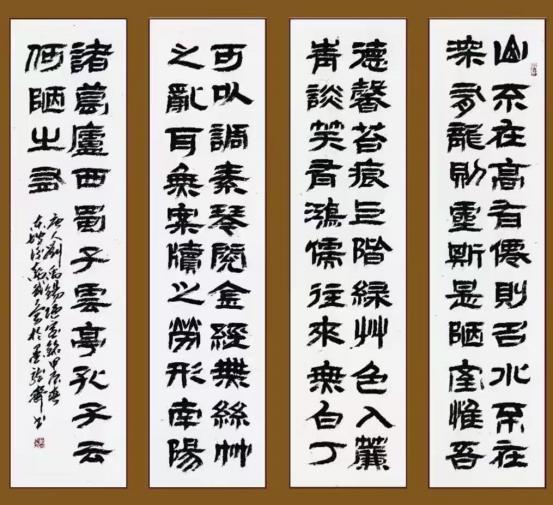 山不在高有僊則名水不在
深有龍則靈斯是陋室惟吾
德馨苔痕上階綠艸色入簾
青談笑有鴻儒往來無白丁
可以調素琴閱金經無絲竹
之亂耳無案牘之勞形南陽
諸葛廬西蜀子雲亭孔子云
何陋之有
唐人劉禹錫陋室銘甲辰春
於墨齋